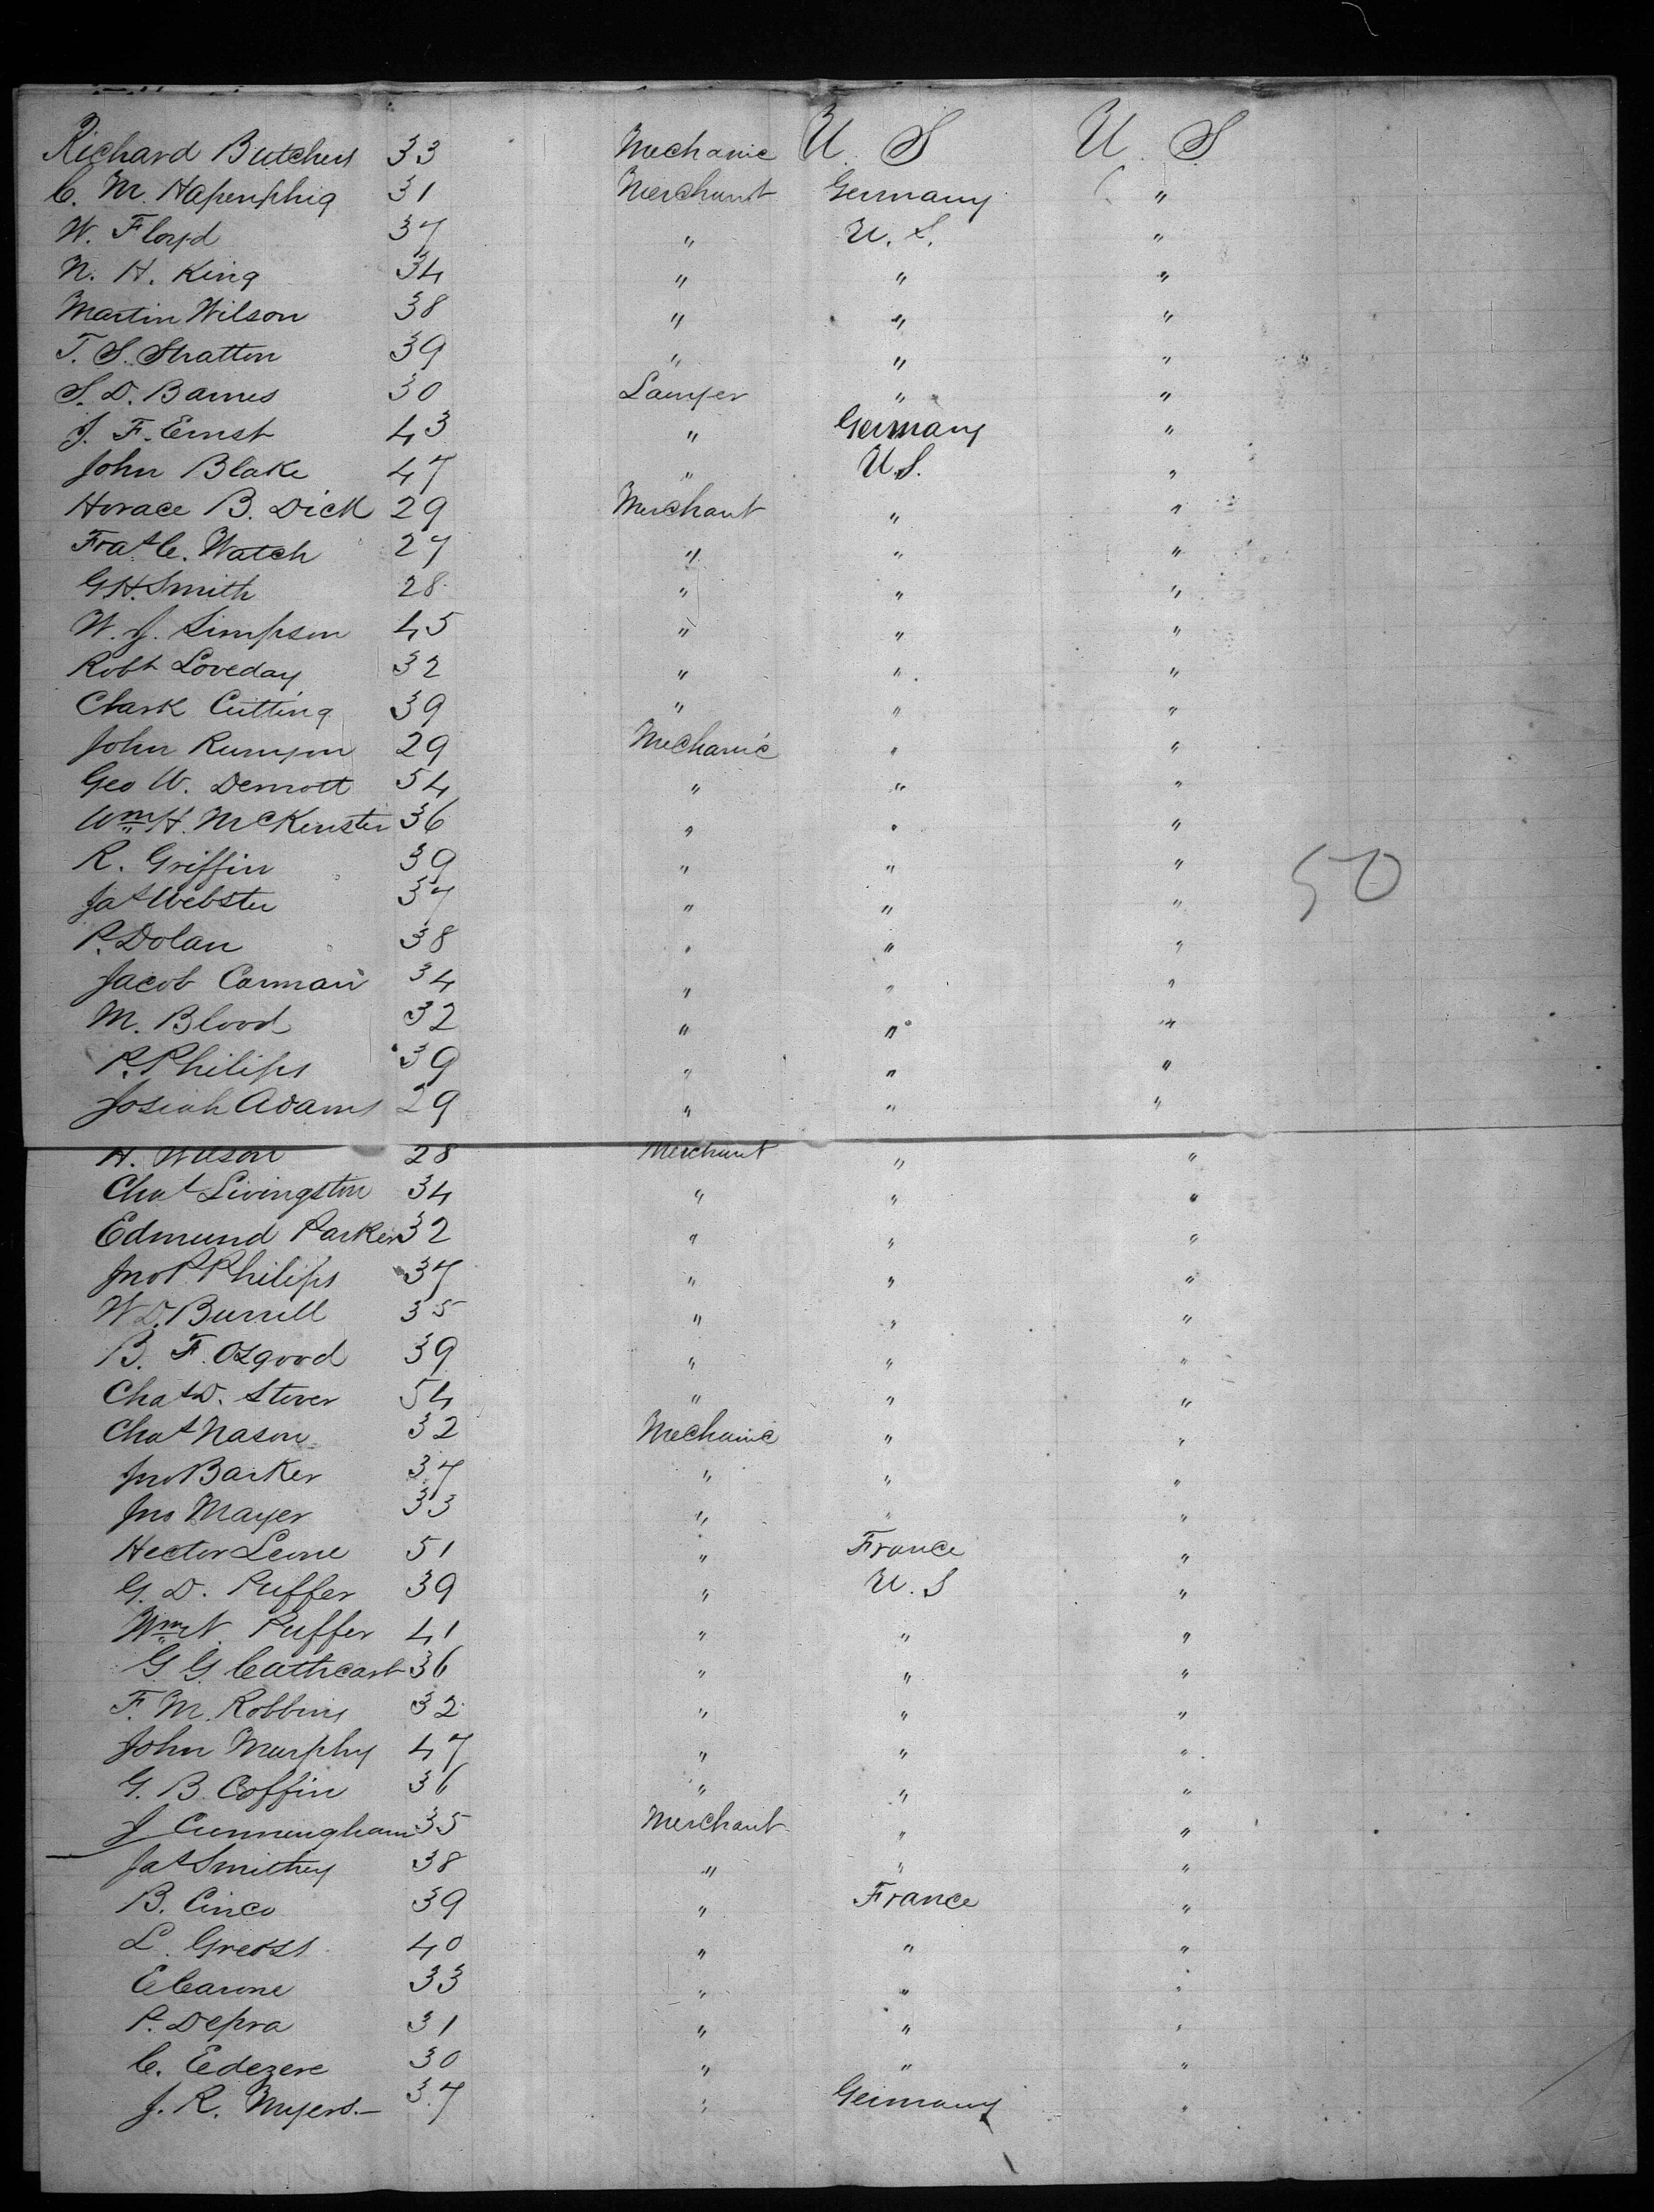 Richard Butchers 33 Mechanic U. S U. S
C. M. Hapenphig 31 Merchant Germany "
W. Floyd 37 " U. S. "
N. H. King 34 " " "
Martin Wilson 38 " " "
T. S. Stratton 39 " " "
S. D. Barnes 30 Lawyer " "
J. F. Ernst 43 " Germany "
John Blake 47 " U.S. "
Horace B. Dick 29 Merchant " "
Fras C. Watch 27 " " "
G H. Smith 28 " " "
W. J. Simpson 45 " " "
Robt Loveday 32 " " "
Clark Cutting 39 " " "
John Runyon 29 Mechanic " "
Geo W. Demott 54 " " "
Wm H. McKenster 36 " " "
R. Griffin 39 " " "
Jas Webster 37 " " " 50
P. Dolan 38 " " "
Jacob Carman 34 " " "
M. Blood 32 " " "
P. Philips 39 " " "
Josiah Adams 29 " " "
H. Wilson 28 Merchant " "
Chas Livingston 34 " " "
Edmund Parker 32 " " "
Jno P. Philips 37 " " "
W D. Burrill 35 " " "
B. F. Osgood 39 " " "
Chas D. Stover 54 " " "
Chas Nason 32 Mechanic " "
Jno Barker 37 " " "
Jno Mayer 33 " " "
Hector Leone 51 " France "
G. D. Puffer 39 " U. S "
Wm N. Puffer 41 " " "
G G. Cathcart 36 " " "
F. M. Robbins 32 " " "
John Murphy 47 " " "
G. B. Coffin 36 " " "
J Cunningham 35 Merchant " "
Jas Smithey 38 " " "
B. Cinco 39 " France "
L. Greoss 40 " " "
E Carone 33 " " "
P. Depra 31 " " "
C. Edezere 30 " " "
J. R. Myers.— 37 " Germany "